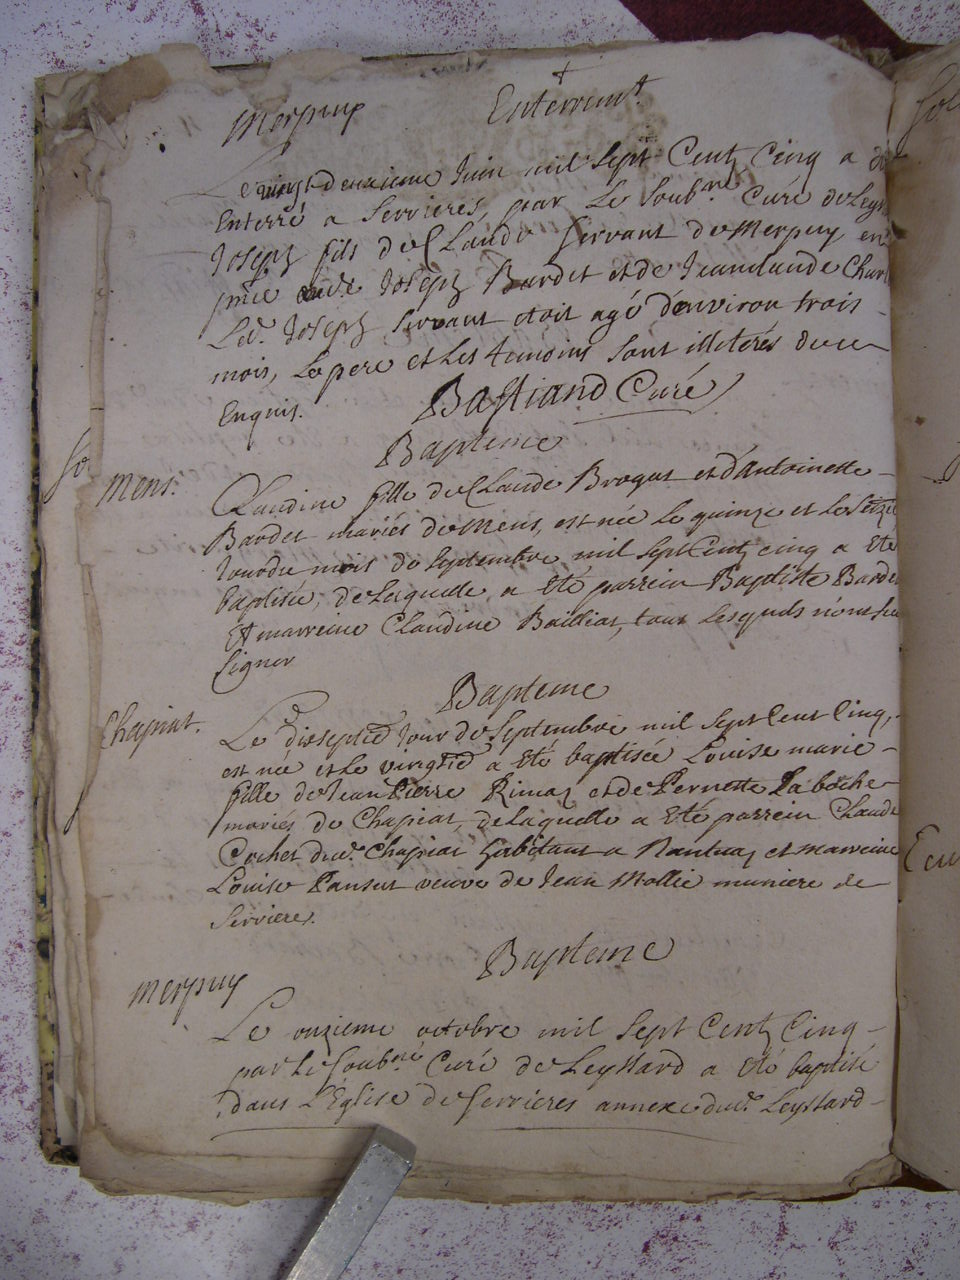 Merpuy Enterrem.t
Le vingt deuxieme Juin mil Sept Cent Cinq a été
Enterré a Serrieres, par Le Soub.né Curé de Leys
Joseph fils de Claude Servant de Merpuy en
pnce Joseph Bardet et de Jeanclaude Char
Led. Joseph Servant etoit agé d'environ trois
mois, Le pere et Les temoins sont illiterés de ce
Enquis. Bastiand Curé
Bapteme
Mens.
Claudine fille de Claude Brogat et d'Antoinette
Bardet mariés de Mens, est née Le quinze et Le Seizie
Jour du mois de Septembre mil Sept Cent cinq a Eté
baptisée, de Laquelle a Eté parrein Baptiste Barde
Et marreine Claudine Bailliat, tous Lesquels n'ont su
Signer
Bapteme
Chapiat.
Le dixseptie Jour de Septembre mil Sept Cent Cinq,
est née et Le vingtie a Eté baptisée Louise marie
fille de Jean Pierre Rimaz et de Pernette Laboche
mariés de Chapiat, de Laquelle a Eté parrein Claude
Cochet dud. Chapiat habitant a Nantua, et marreine
Louise Panset veuve de Jean Mollie muniere de
Serrieres.
Bapteme
Merpuy
Le onzieme octobre mil Sept Cent Cinq
par Le Soub.né Curé de Leyssard a Eté baptisé
dans L'Eglise de Serrieres annexe dud. Leyssard